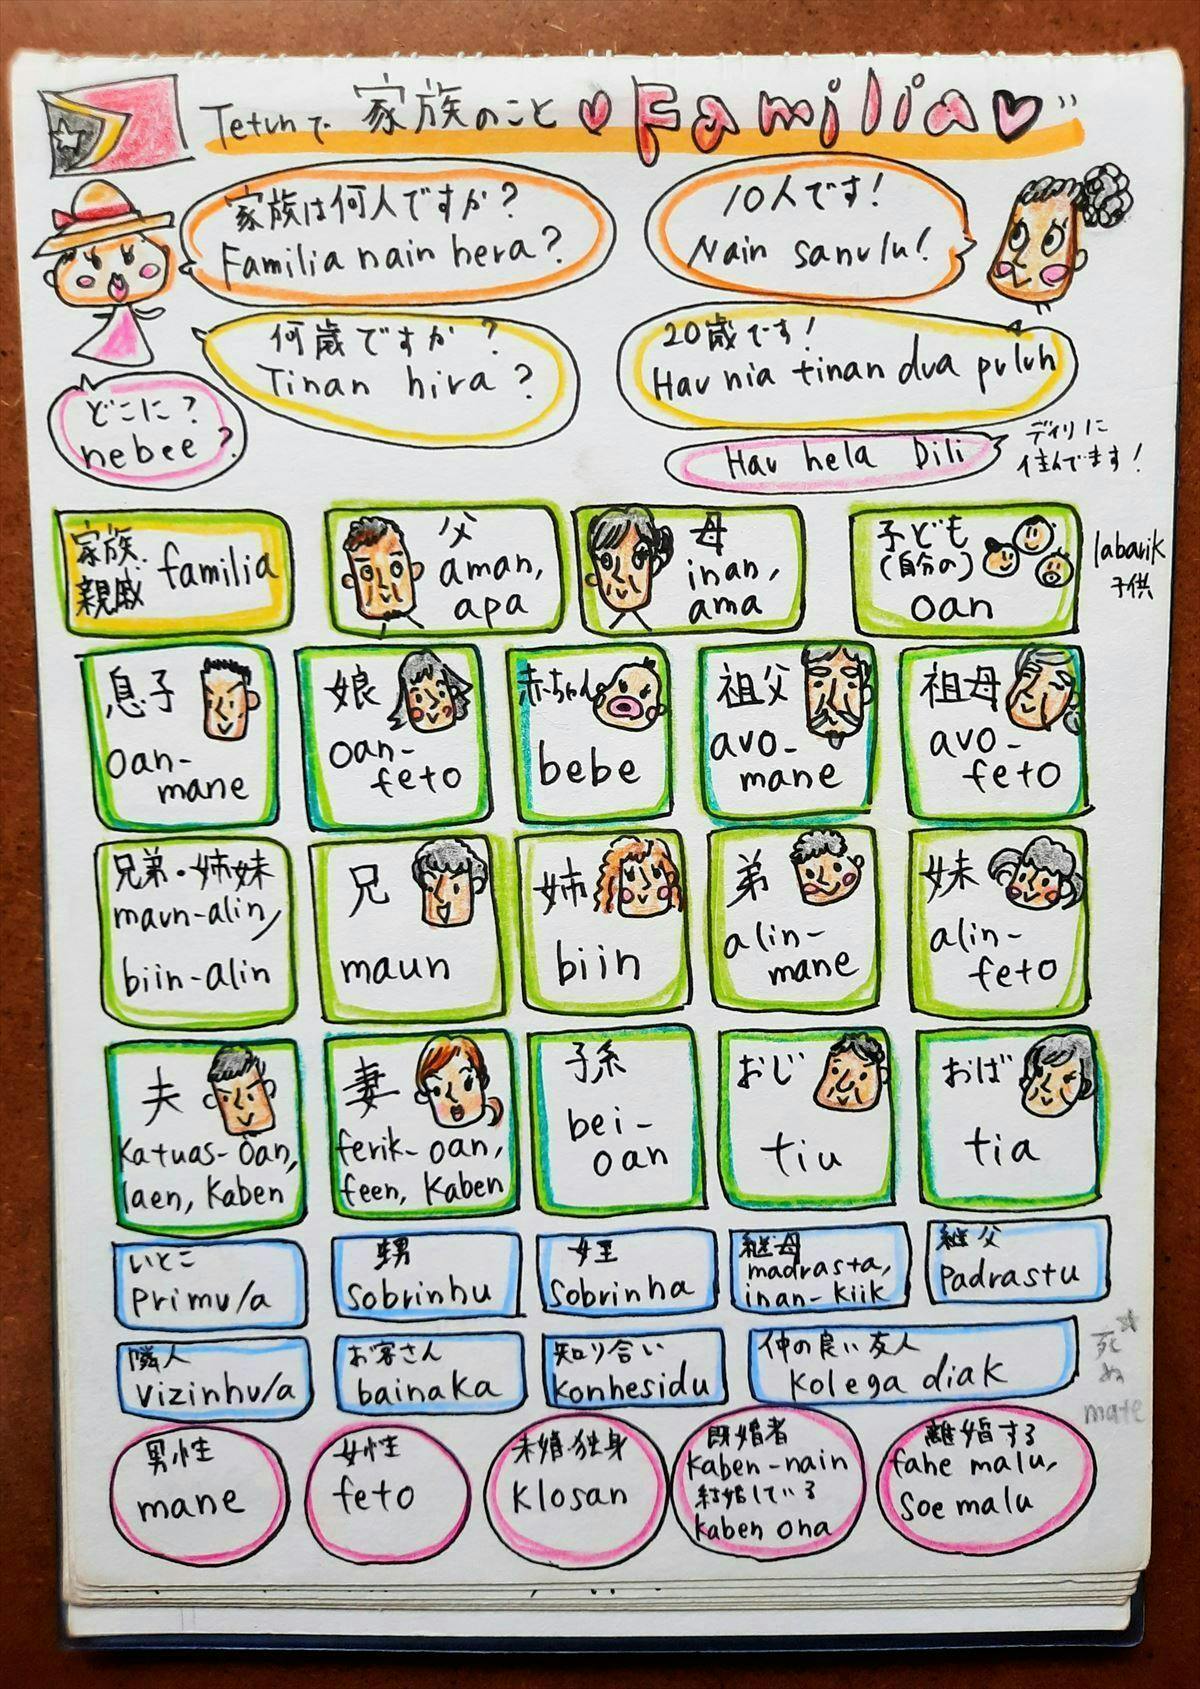 Tetunで 家族のこと Familia
家族は何人ですか?
Familia nain hera?
10人です!
Nain sanulu!
何歳ですか?
Tinan hira?
20歳です!
Hau nia tinan dua puluh
どこに?
nebee?
Hau hela Dili
ディリに
住んでます!
家族、
親戚
familia
父
aman,
apa
母
inan,
ama
子ども
(自分の)
oan
labarik
子供
息子
oan-
mane
娘
oan-
feto
赤ちゃん
bebe
祖父
avo-
mane
祖母
avo-
feto
兄弟・姉妹
maun-alin,
biin-alin
兄
maun
姉
biin
弟
alin-
mane
妹
alin-
feto
夫
Katuas-oan,
laen, Kaben
妻
ferik-oan,
feen, Kaben
孫
bei-
oan
おじ
tiu
おば
tia
いとこ
primu/a
甥
sobrinhu
姪
sobrinha
継母
madrasta,
inan-kiik
継父
Padrastu
隣人
vizinhu/a
お客さん
bainaka
知り合い
konhesidu
仲の良い友人
Kolega diak
死
ぬ
mate
男性
mane
女性
feto
未婚・独身
Klosan
既婚者
Kaben-nain
結婚している
Kaben ona
離婚する
fahe malu,
Soe malu